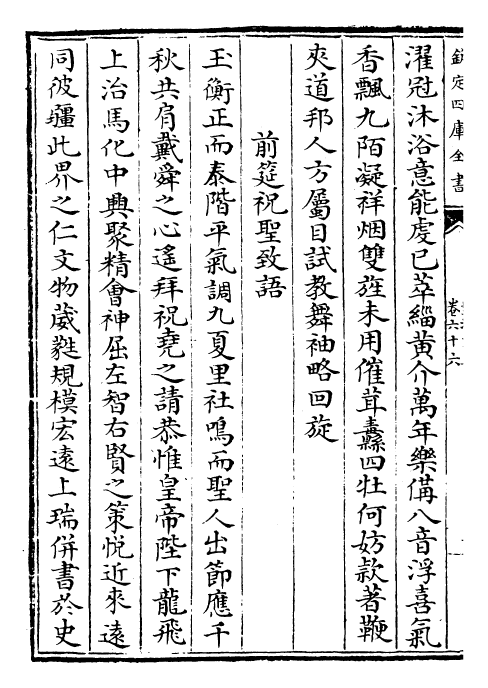 欽定四庫全書
卷六十六
濯冠沐浴意能䖍已萃緇黄介萬年樂備八音浮喜氣
香飄九陌凝祥烟雙旌未用催茸纛四牡何妨款著鞭
夾道邦人方屬目試教舞袖略回旋
前筵祝聖致語
玉衡正而泰階平氣調九夏里社鳴而聖人出節應千
秋共肩戴舜之心遙拜祝堯之請恭惟皇帝陛下龍飛
上治馬化中興聚精會神屈左智右賢之策悦近來遠
同彼疆此界之仁文物葳蕤規模宏遠上瑞併書於史